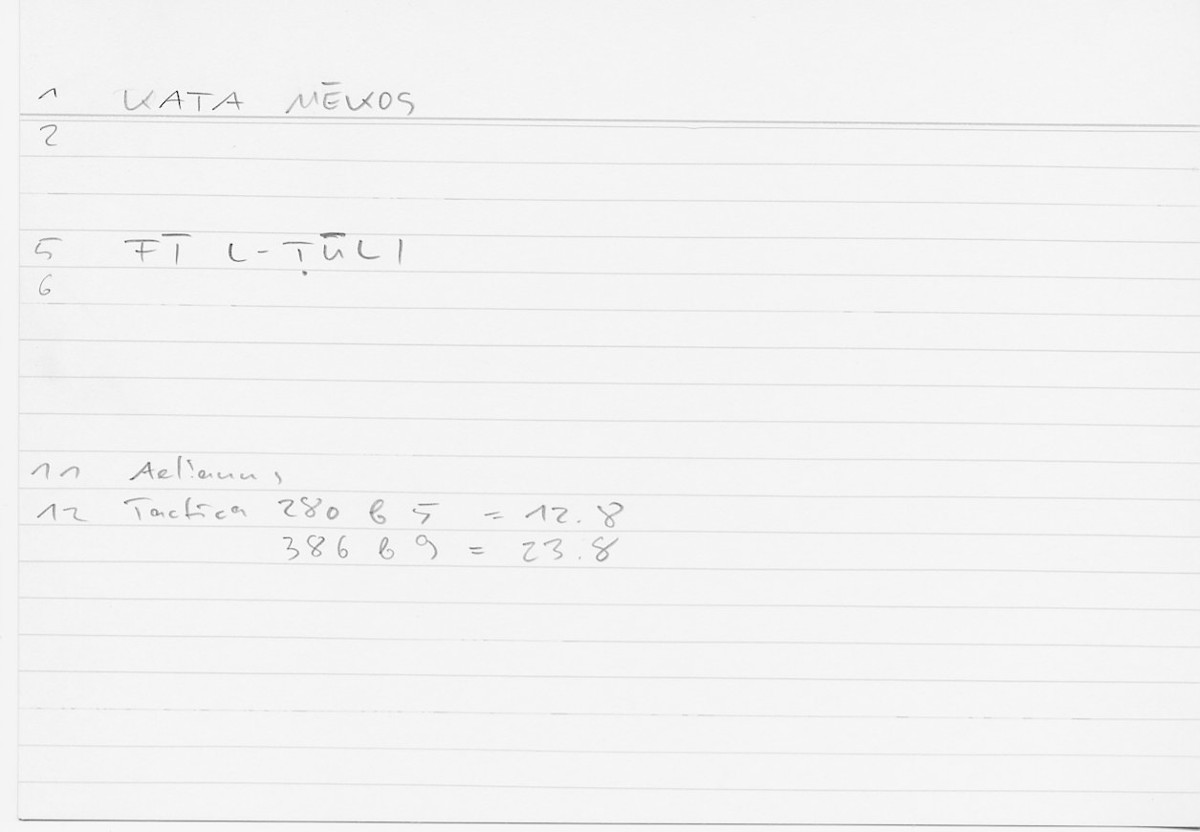 1 KATA MĒKOS
2
5 FĪ L-ṬŪLI
6
11 Aelianus,
12 Tactica 280 b 5 = 12.8
386 b 9 = 23.8